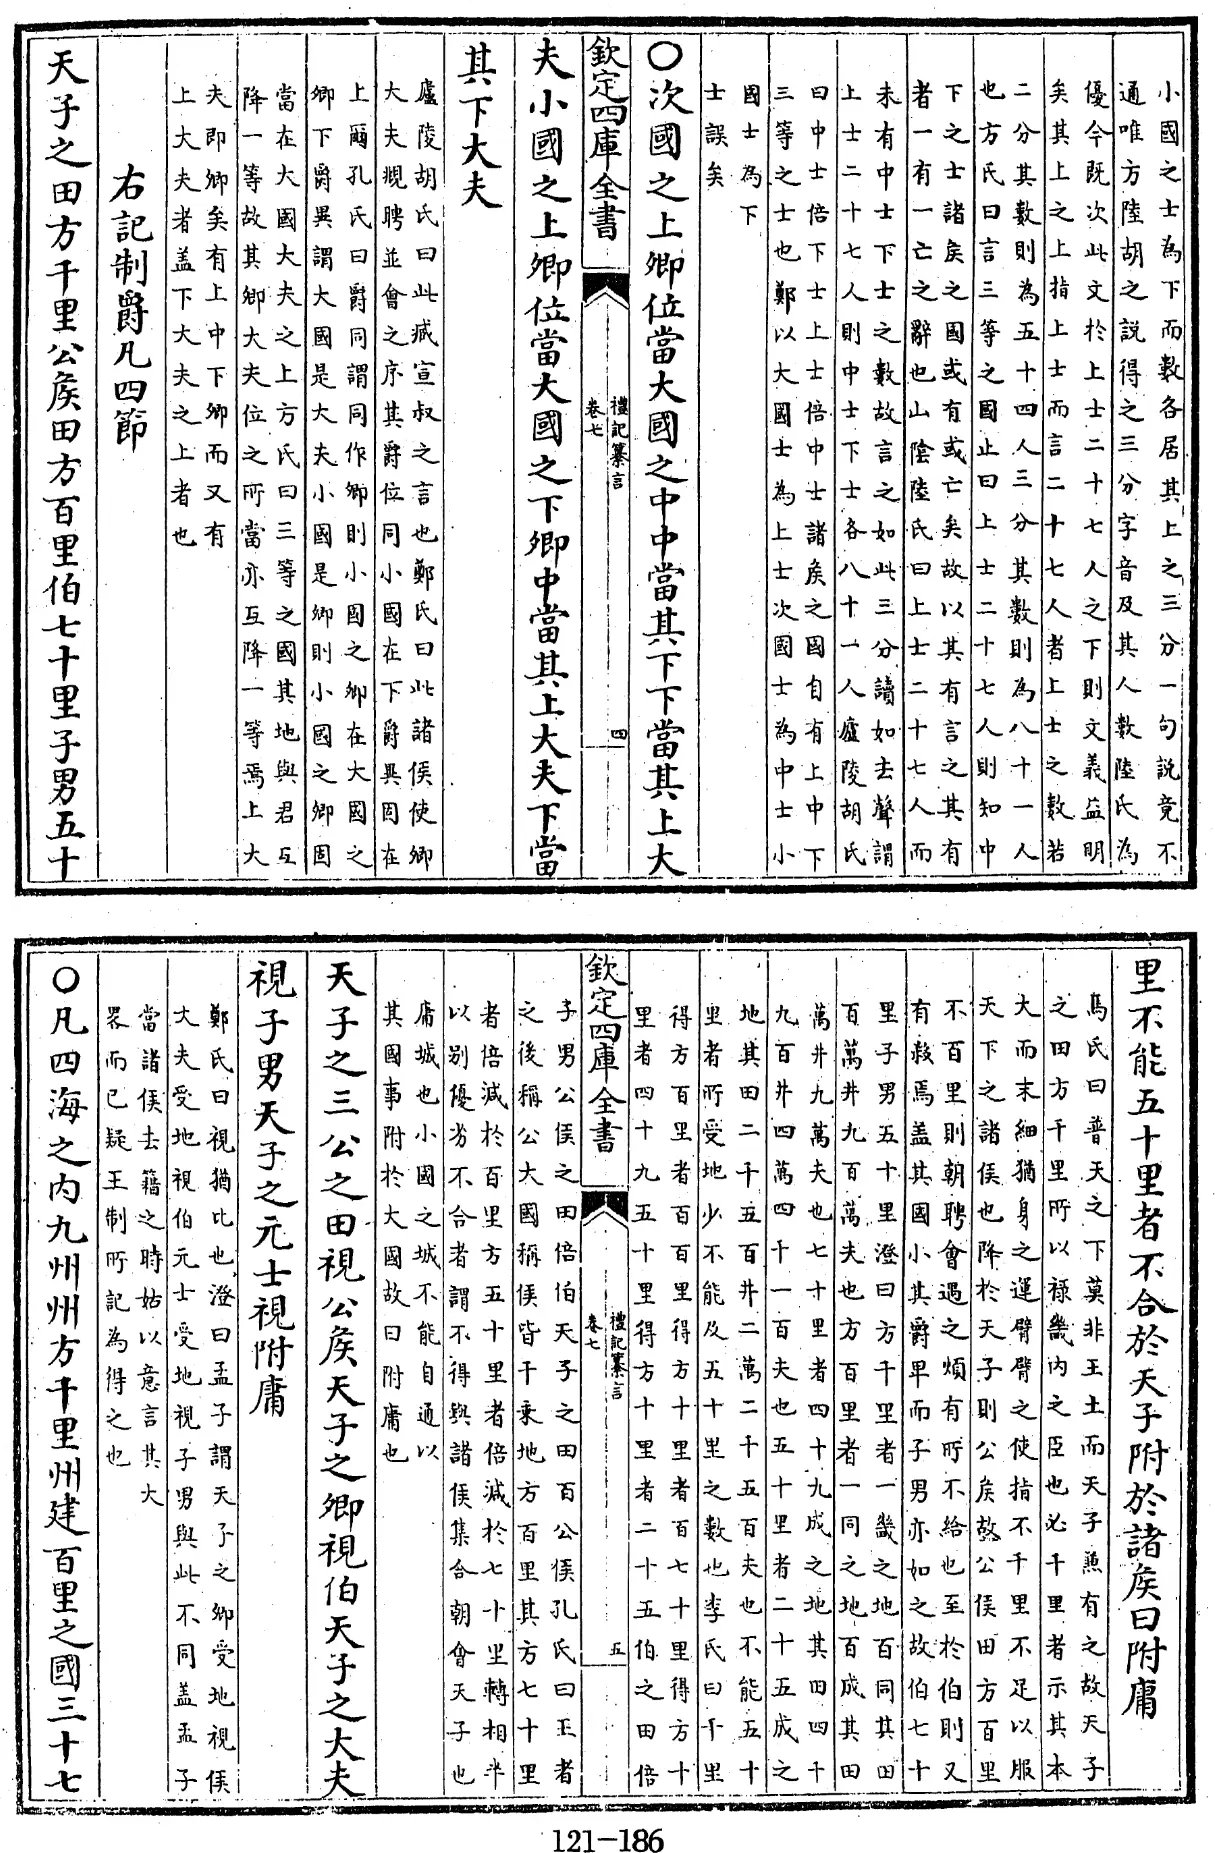 小國之士為下而數各居其上之三分一句說竟不
通唯方陸胡之說得之三分字音及其人數陸氏為
優今既次此文於上士二十七人之下則文義益明
矣其上之上指上士而言二十七人者上士之數若
二分其數則為五十四人三分其數則為八十一人
也方氏曰言三等之國止曰上士二十七人則知中
下之士諸侯之國或有或亡矣故以其有言之其有
者一有一亡之辭也山陰陸氏曰上士二十七人而
未有中士下士之數故言之如此三分讀如去聲謂
上士二十七人則中士下士各八十一人廬陵胡氏
曰中士倍下士上士倍中士諸侯之國自有上中下
三等之士也鄭以大國士為上士次國士為中士小
國士為下
士誤矣
○次國之上卿位當大國之中中當其下下當其上大
欽定四庫全書
禮記纂言
卷七
四
夫小國之上卿位當大國之下卿中當其上大夫下當
其下大夫
廬陵胡氏曰此臧宣叔之言也鄭氏曰此諸侯使卿
大夫覜聘並會之序其爵位同小國在下爵異固在
上爾孔氏曰爵同謂同作卿則小國之卿在大國之
卿下爵異謂大國是大夫小國是卿則小國之卿固
當在大國大夫之上方氏曰三等之國其地與君互
降一等故其卿大夫位之所當亦互降一等焉上大
夫即卿矣有上中下卿而又有
上大夫者盖下大夫之上者也
右記制爵凡四節
天子之田方千里公侯田方百里伯七十里子男五十
里不能五十里者不合於天子附於諸侯曰附庸
馬氏曰普天之下莫非王土而天子兼有之故天子
之田方千里所以祿畿內之臣也必千里者示其本
大而末細猶身之運臂臂之使指不千里不足以服
天下之諸侯也降於天子則公侯故公侯田方百里
不百里則朝聘會遇之煩有所不給也至於伯則又
有殺焉盖其國小其爵卑而子男亦如之故伯七十
里子男五十里澄曰方千里者一畿之地百同其田
百萬井九百萬夫也方百里者一同之地百成其田
萬井九萬夫也七十里者四十九成之地其田四千
九百井四萬四千一百夫也五十里者二十五成之
地其田二千五百井二萬二千五百夫也不能五十
里者所受地少不能及五十里之數也李氏曰千里
得方百里者百百里得方十里者百七十里得方十
里者四十九五十里得方十里者二十五伯之田倍
欽定四庫全書
禮記纂言
卷七
五
子男公侯之田倍伯天子之田百公侯孔氏曰王者
之後稱公大國稱侯皆千乘地方百里其方七十里
者倍減於百里方五十里者倍減於七十里轉相半
以別優劣不合者謂不得與諸侯集合朝會天子也
庸城也小國之城不能自通以
其國事附於大國故曰附庸也
天子之三公之田視公侯天子之卿視伯天子之大夫
視子男天子之元士視附庸
鄭氏曰視猶比也澄曰孟子謂天子之卿受地視侯
大夫受地視伯元士受地視子男與此不同盖孟子
當諸侯去籍之時姑以意言其大
畧而已疑王制所記為得之也
○凡四海之內九州州方千里州建百里之國三十七
121-186